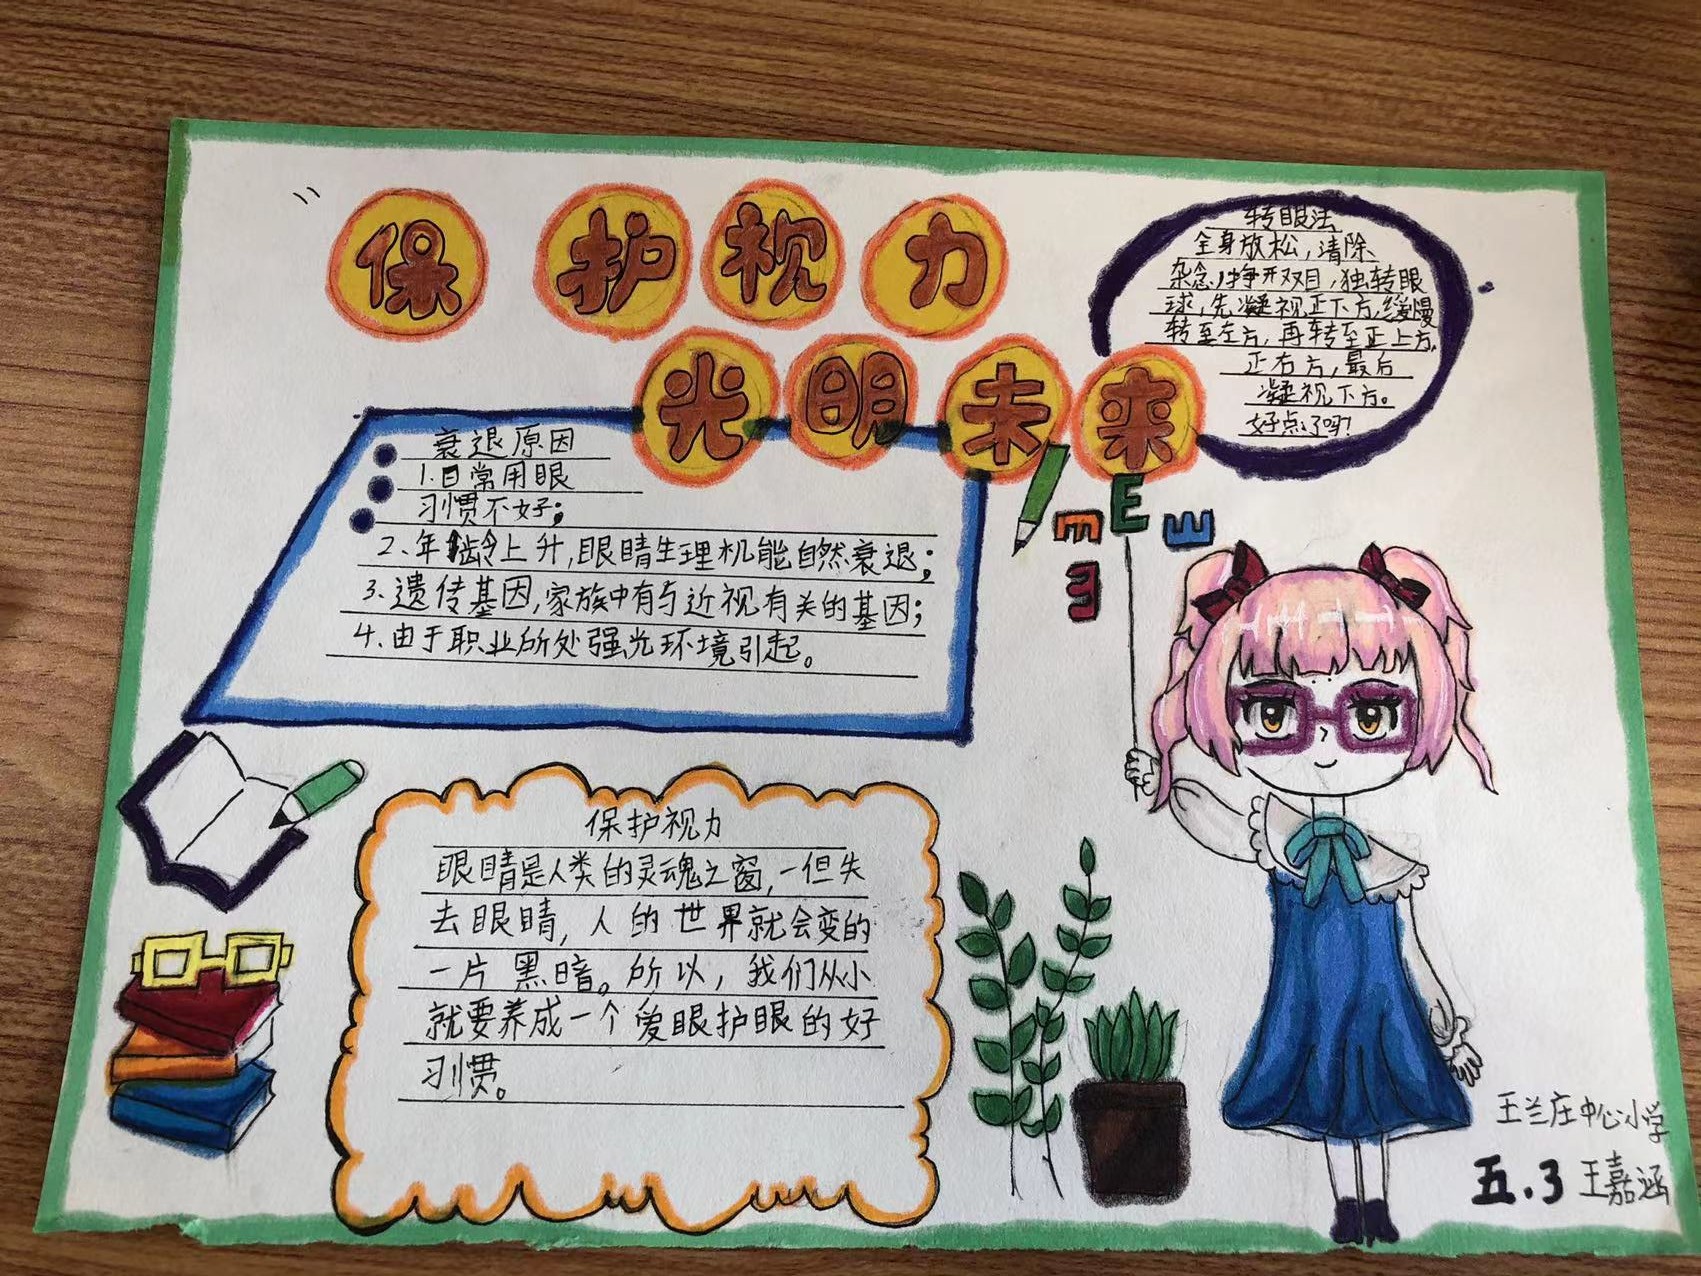 保护视力
光明未来
转眼法
全身放松，清除
杂念，睁开双目，独转眼
球，先凝视正下方，缓慢
转至左方，再转至正上方，
正右方，最后
凝视下方。
好点了吗？
衰退原因
1.日常用眼
习惯不好；
2、年龄上升，眼睛生理机能自然衰退；
3、遗传基因，家族中有与近视有关的基因；
4、由于职业所处强光环境引起。
E
E
E
E
保护视力
眼睛是人类的灵魂之窗，一但失
去眼睛，人的世界就会变的
一片黑暗。所以，我们从小
就要养成一个爱眼护眼的好
习惯。
王兰庄中心小学
五.3 王嘉涵